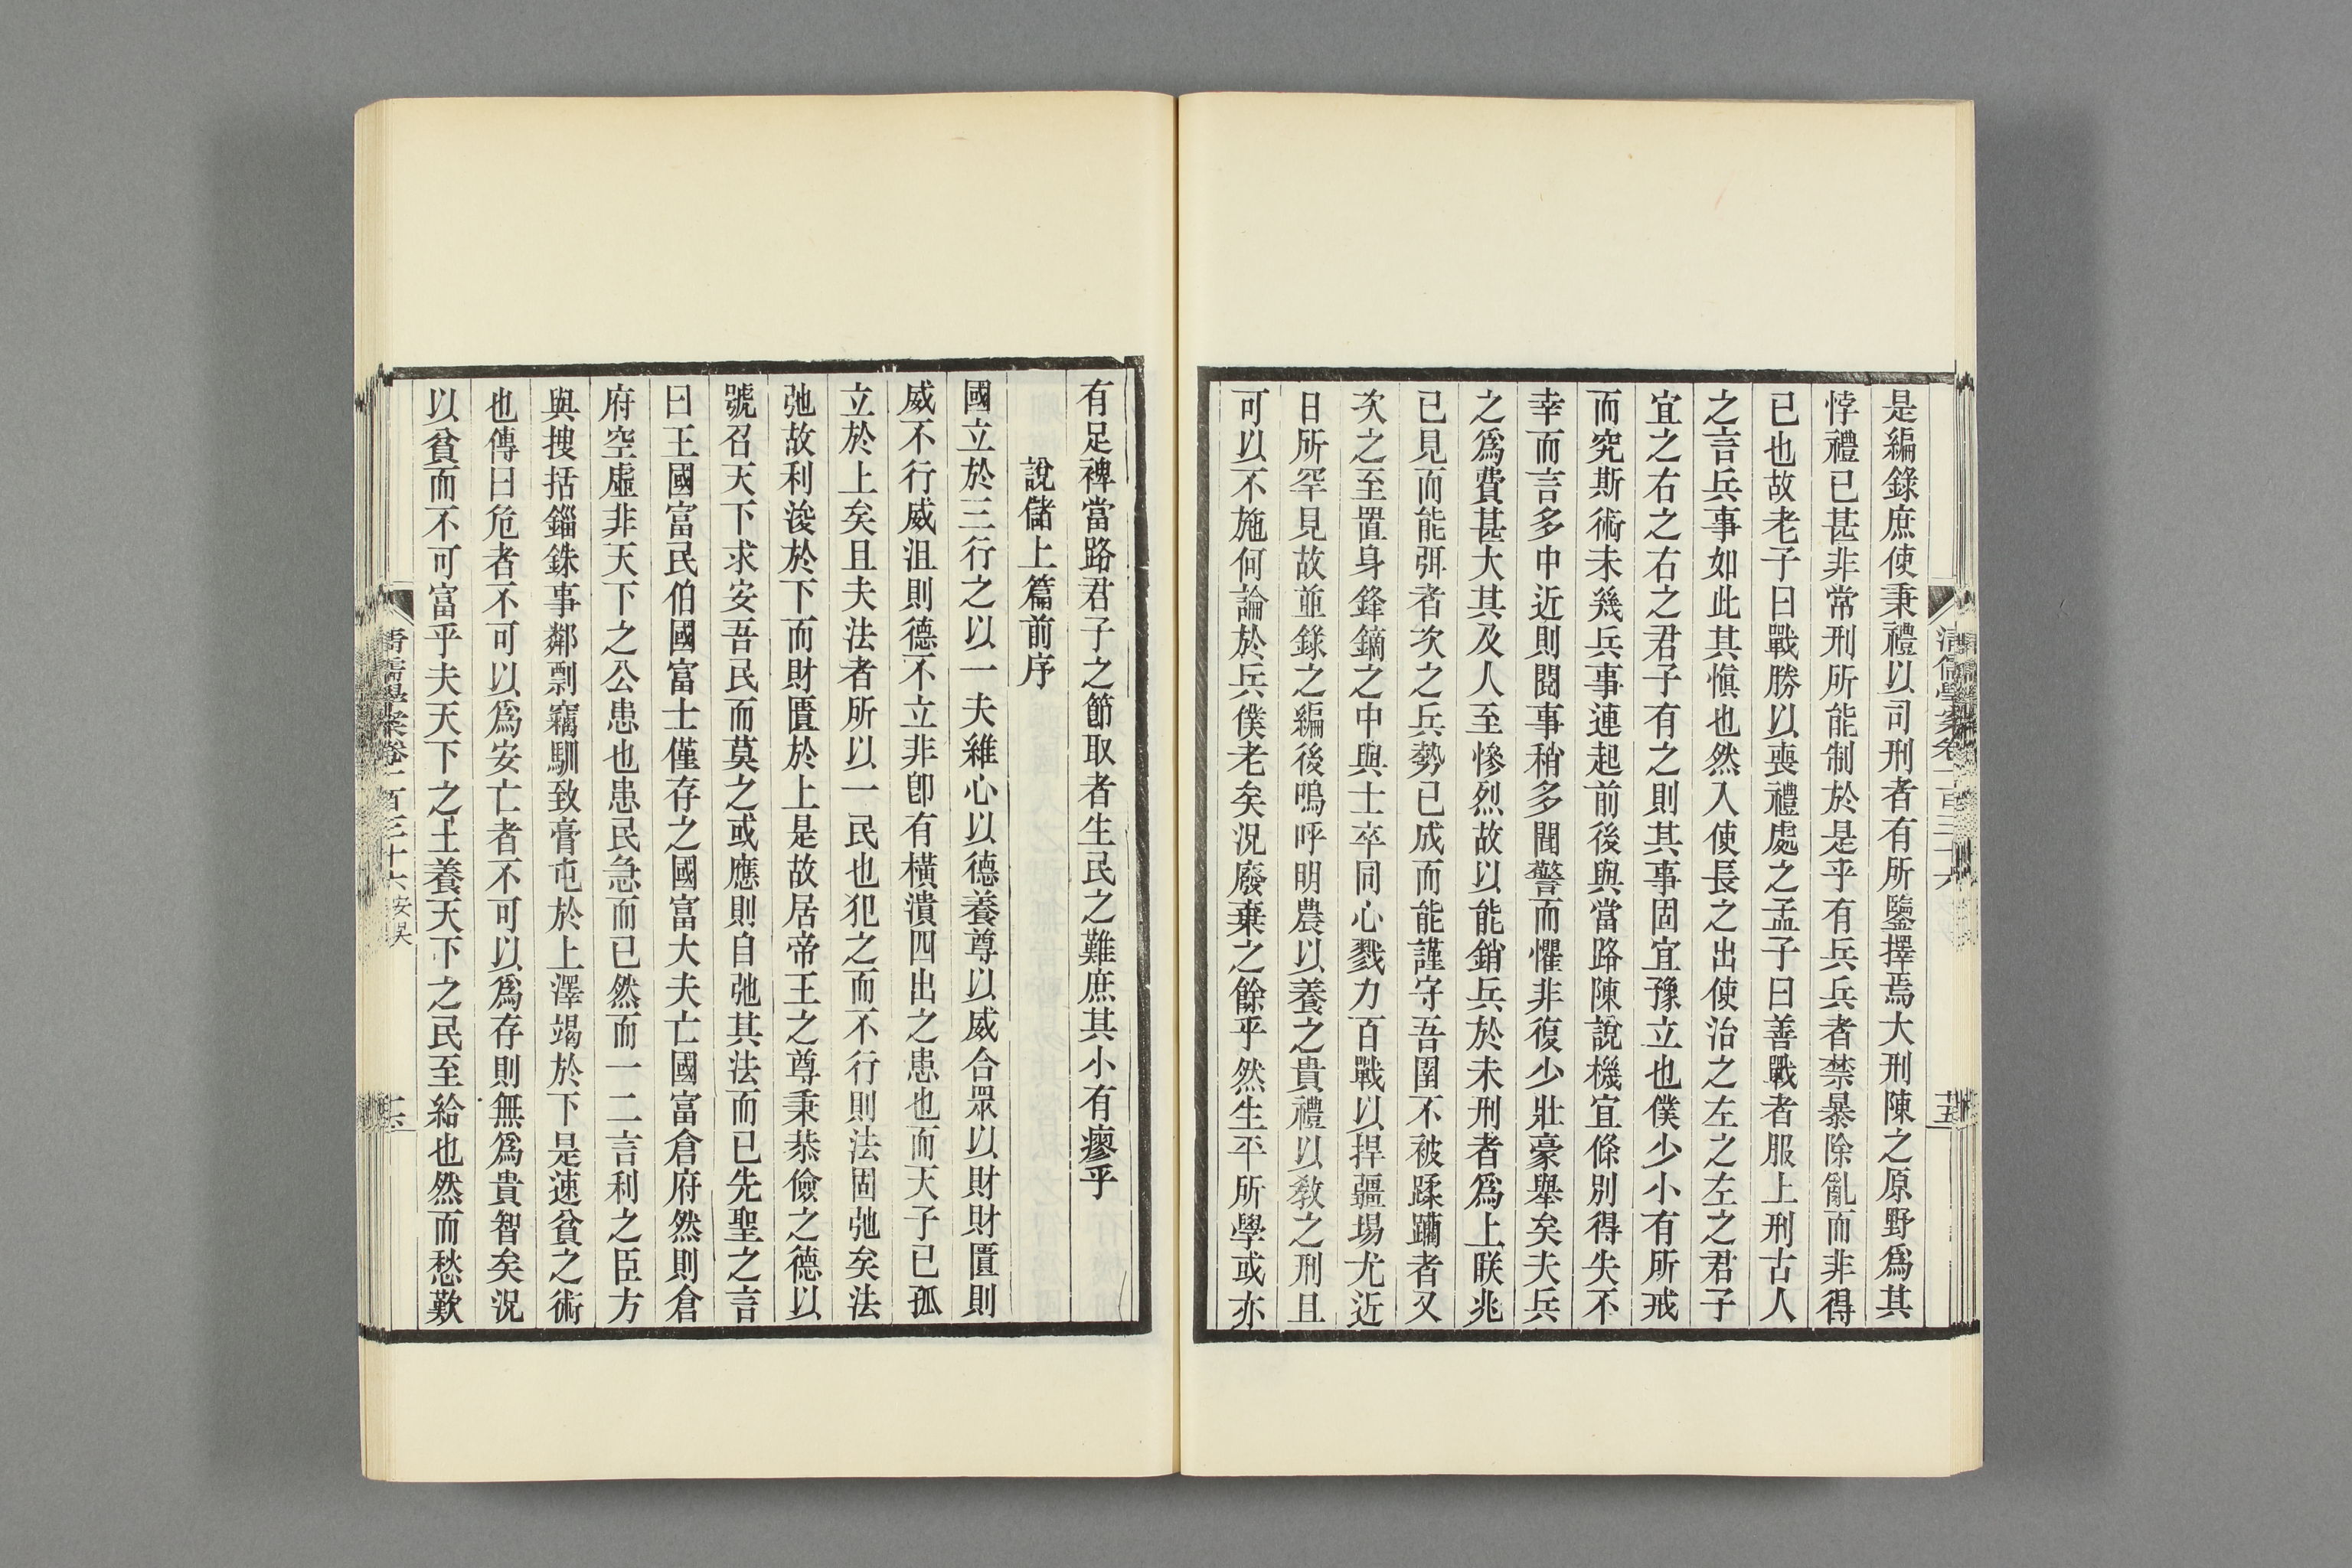 是編錄庶使秉禮以司刑者有所鑒擇焉大刑陳之原野爲其
悖禮已甚非常刑所能制於是乎有兵兵者禁暴除亂而非得
已也故老子曰戰勝以喪禮處之孟子曰善戰者服上刑古人
之言兵事如此其愼也然入使長之出使治之左之左之君子
宜之右之右之君子有之則其事固宜豫立也僕少小有所戒
而究斯術未幾兵事連起前後與當路陳說機宜條別得失不
幸而言多中近則閱事稍多聞警而懼非復少壯豪舉矣夫兵
之爲費甚大其及人至慘烈故以能銷兵於未刑者爲上朕兆
已見而能弭者次之兵勢已成而能謹守吾圉不被蹂躪者又
次之至置身鋒鏑之中與士卒同心戮力百戰以捍疆場尤近
日所罕見故並錄之編後嗚呼明農以養之貴禮以敎之刑且
可以不施何論於兵僕老矣況廢棄之餘乎然生平所學或亦
有足裨當路君子之節取者生民之難庶其小有瘳乎
說儲上篇前序
國立於三行之以一夫維心以德養尊以威合眾以財財匱則
威不行威沮則德不立非卽有橫潰四出之患也而天子已孤
立於上矣且夫法者所以一民也犯之而不行則法固弛矣法
弛故利浚於下而財匱於上是故居帝王之尊秉恭儉之德以
號召天下求安吾民而莫之或應則自弛其法而已先聖之言
曰王國富民伯國富士僅存之國富大夫亡國富倉府然則倉
府空虛非天下之公患也患民急而已然而一二言利之臣方
與搜括錙銖事鄰剽竊馴致膏屯於上澤竭於下是速貧之術
也傳曰危者不可以爲安亡者不可以爲存則無爲貴智矣況
以貧而不可富乎夫天下之土養天下之民至給也然而愁歎
清儒學案卷一百三十六 安吳
十五